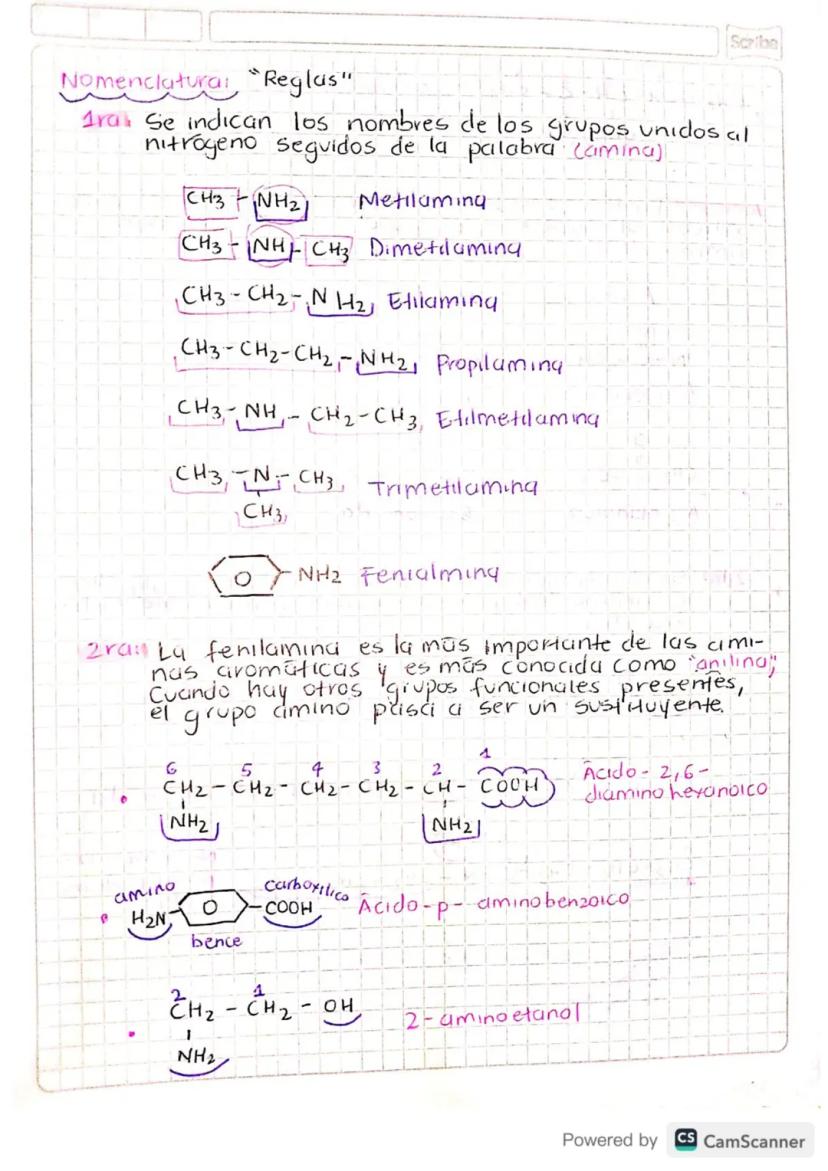 Scribe
Nomenclatura: "Reglas"
1ra: Se indican los nombres de los grupos unidos al
nitrógeno seguidos de la palabra (amina)
CH3 - NH2 Metilamina
CH3 - NH - CH3 Dimetilamina
CH3 - CH2 - NH2 Etilamina
CH3 - CH2 - CH2 - NH2 Propilamina
CH3 - NH - CH2 - CH3 Etilmetilamina
CH3 - N - CH3 Trimetilamina
CH3
O - NH2 Fenialmina
2ra: La fenilamina es la más importante de las ami-
nas aromáticas y es más conocida como "anilina",
Cuando hay otros grupos funcionales presentes,
el grupo amino pasa a ser un sustituyente.
6 5 4 3 2 1
CH2 - CH2 - CH2 - CH2 - CH - COOH Ácido - 2,6 -
diamino hexanoico
NH2 NH2
amino carboxilico
H2N - O - COOH Ácido - p - aminobenzoico
bence
2 1
CH2 - CH2 - OH 2 - aminoetanol
NH2
Powered by CS CamScanner